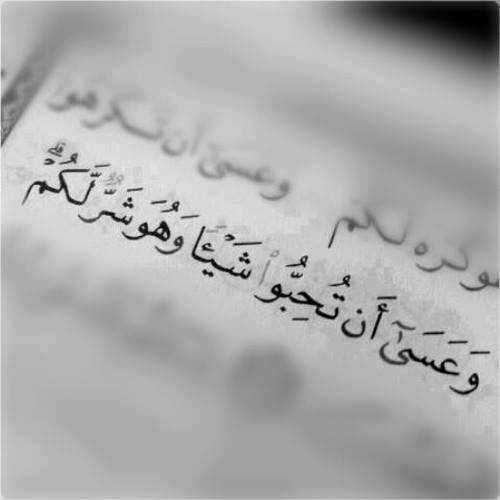 وهو كره لكم وعسى أن تكرهوا
وَعَسَىٰٓ أَن تُحِبُّوا۟ شَيْـًٔا وَهُوَ شَرٌّ لَّكُمْ ۗ